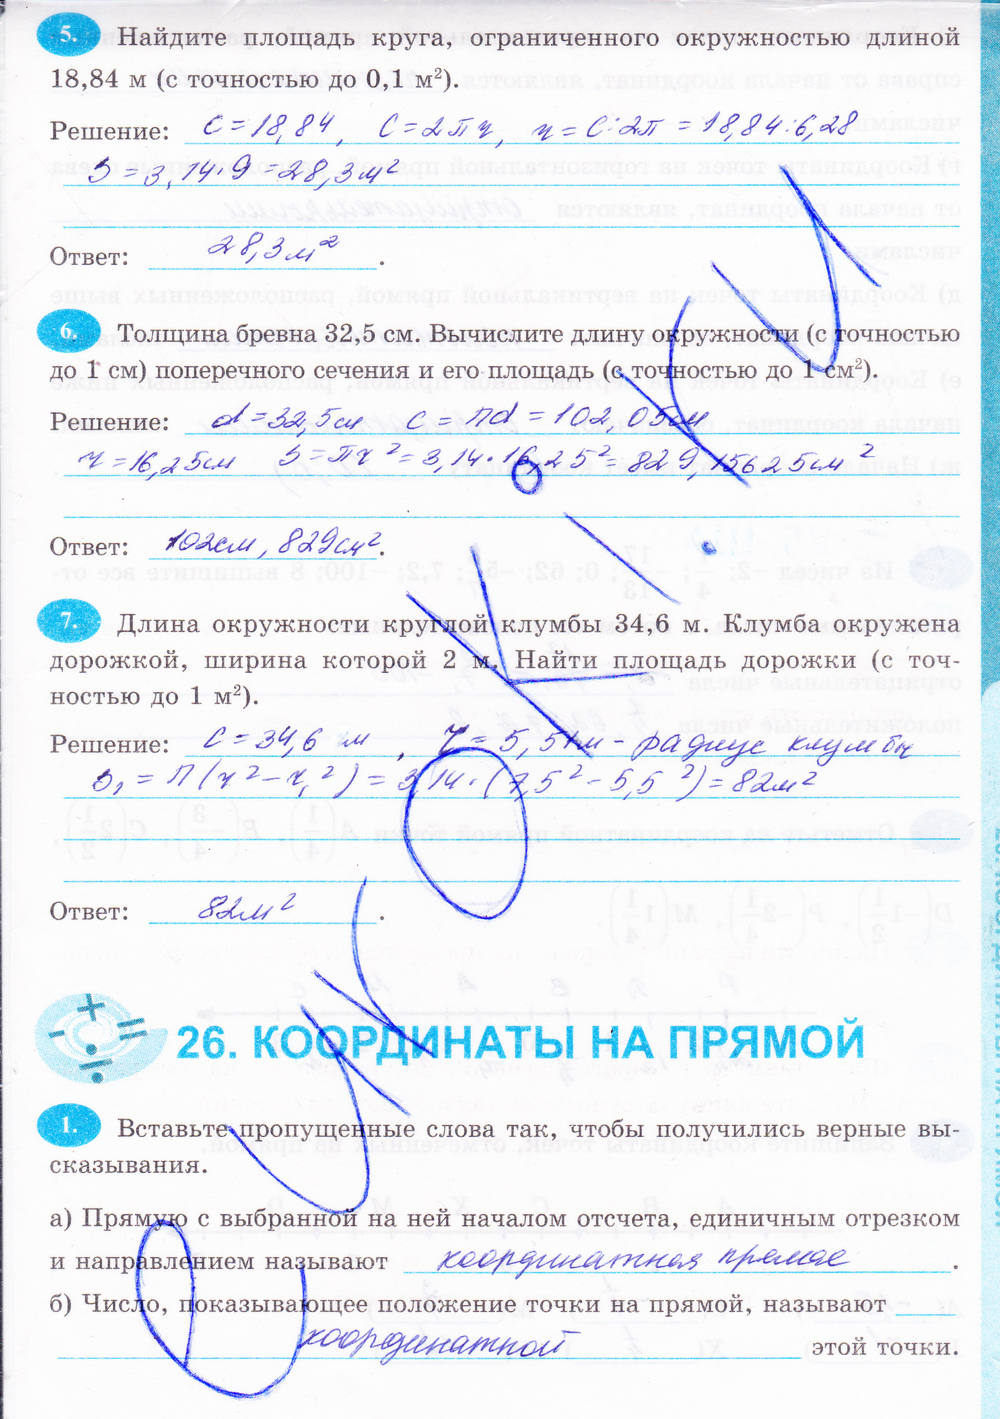 5. Найдите площадь круга, ограниченного окружностью длиной
18,84 м (с точностью до 0,1 м²).
Решение: C = 18,84, C = 2πr, r = C : 2π = 18,84 : 6,28
S = 3,14 · 9 = 28,3 м²
Ответ: 28,3 м².
6. Толщина бревна 32,5 см. Вычислите длину окружности (с точностью
до 1 см) поперечного сечения и его площадь (с точностью до 1 см²).
Решение: d = 32,5 см C = πd = 102,05 см
r = 16,25 см S = πr² = 3,14 · 16,25² = 829,15625 см²
Ответ: 102 см, 829 см².
7. Длина окружности круглой клумбы 34,6 м. Клумба окружена
дорожкой, ширина которой 2 м. Найти площадь дорожки (с точ-
ностью до 1 м²).
Решение: C = 34,6 м, r = 5,51 м - радиус клумбы
S₂ = π(r² - r₁²) = 3,14 · (7,5² - 5,5²) = 82 м²
Ответ: 82 м².
26. КООРДИНАТЫ НА ПРЯМОЙ
1. Вставьте пропущенные слова так, чтобы получились верные вы-
сказывания.
а) Прямую с выбранной на ней началом отсчета, единичным отрезком
и направлением называют координатная прямая.
б) Число, показывающее положение точки на прямой, называют
координатной этой точки.